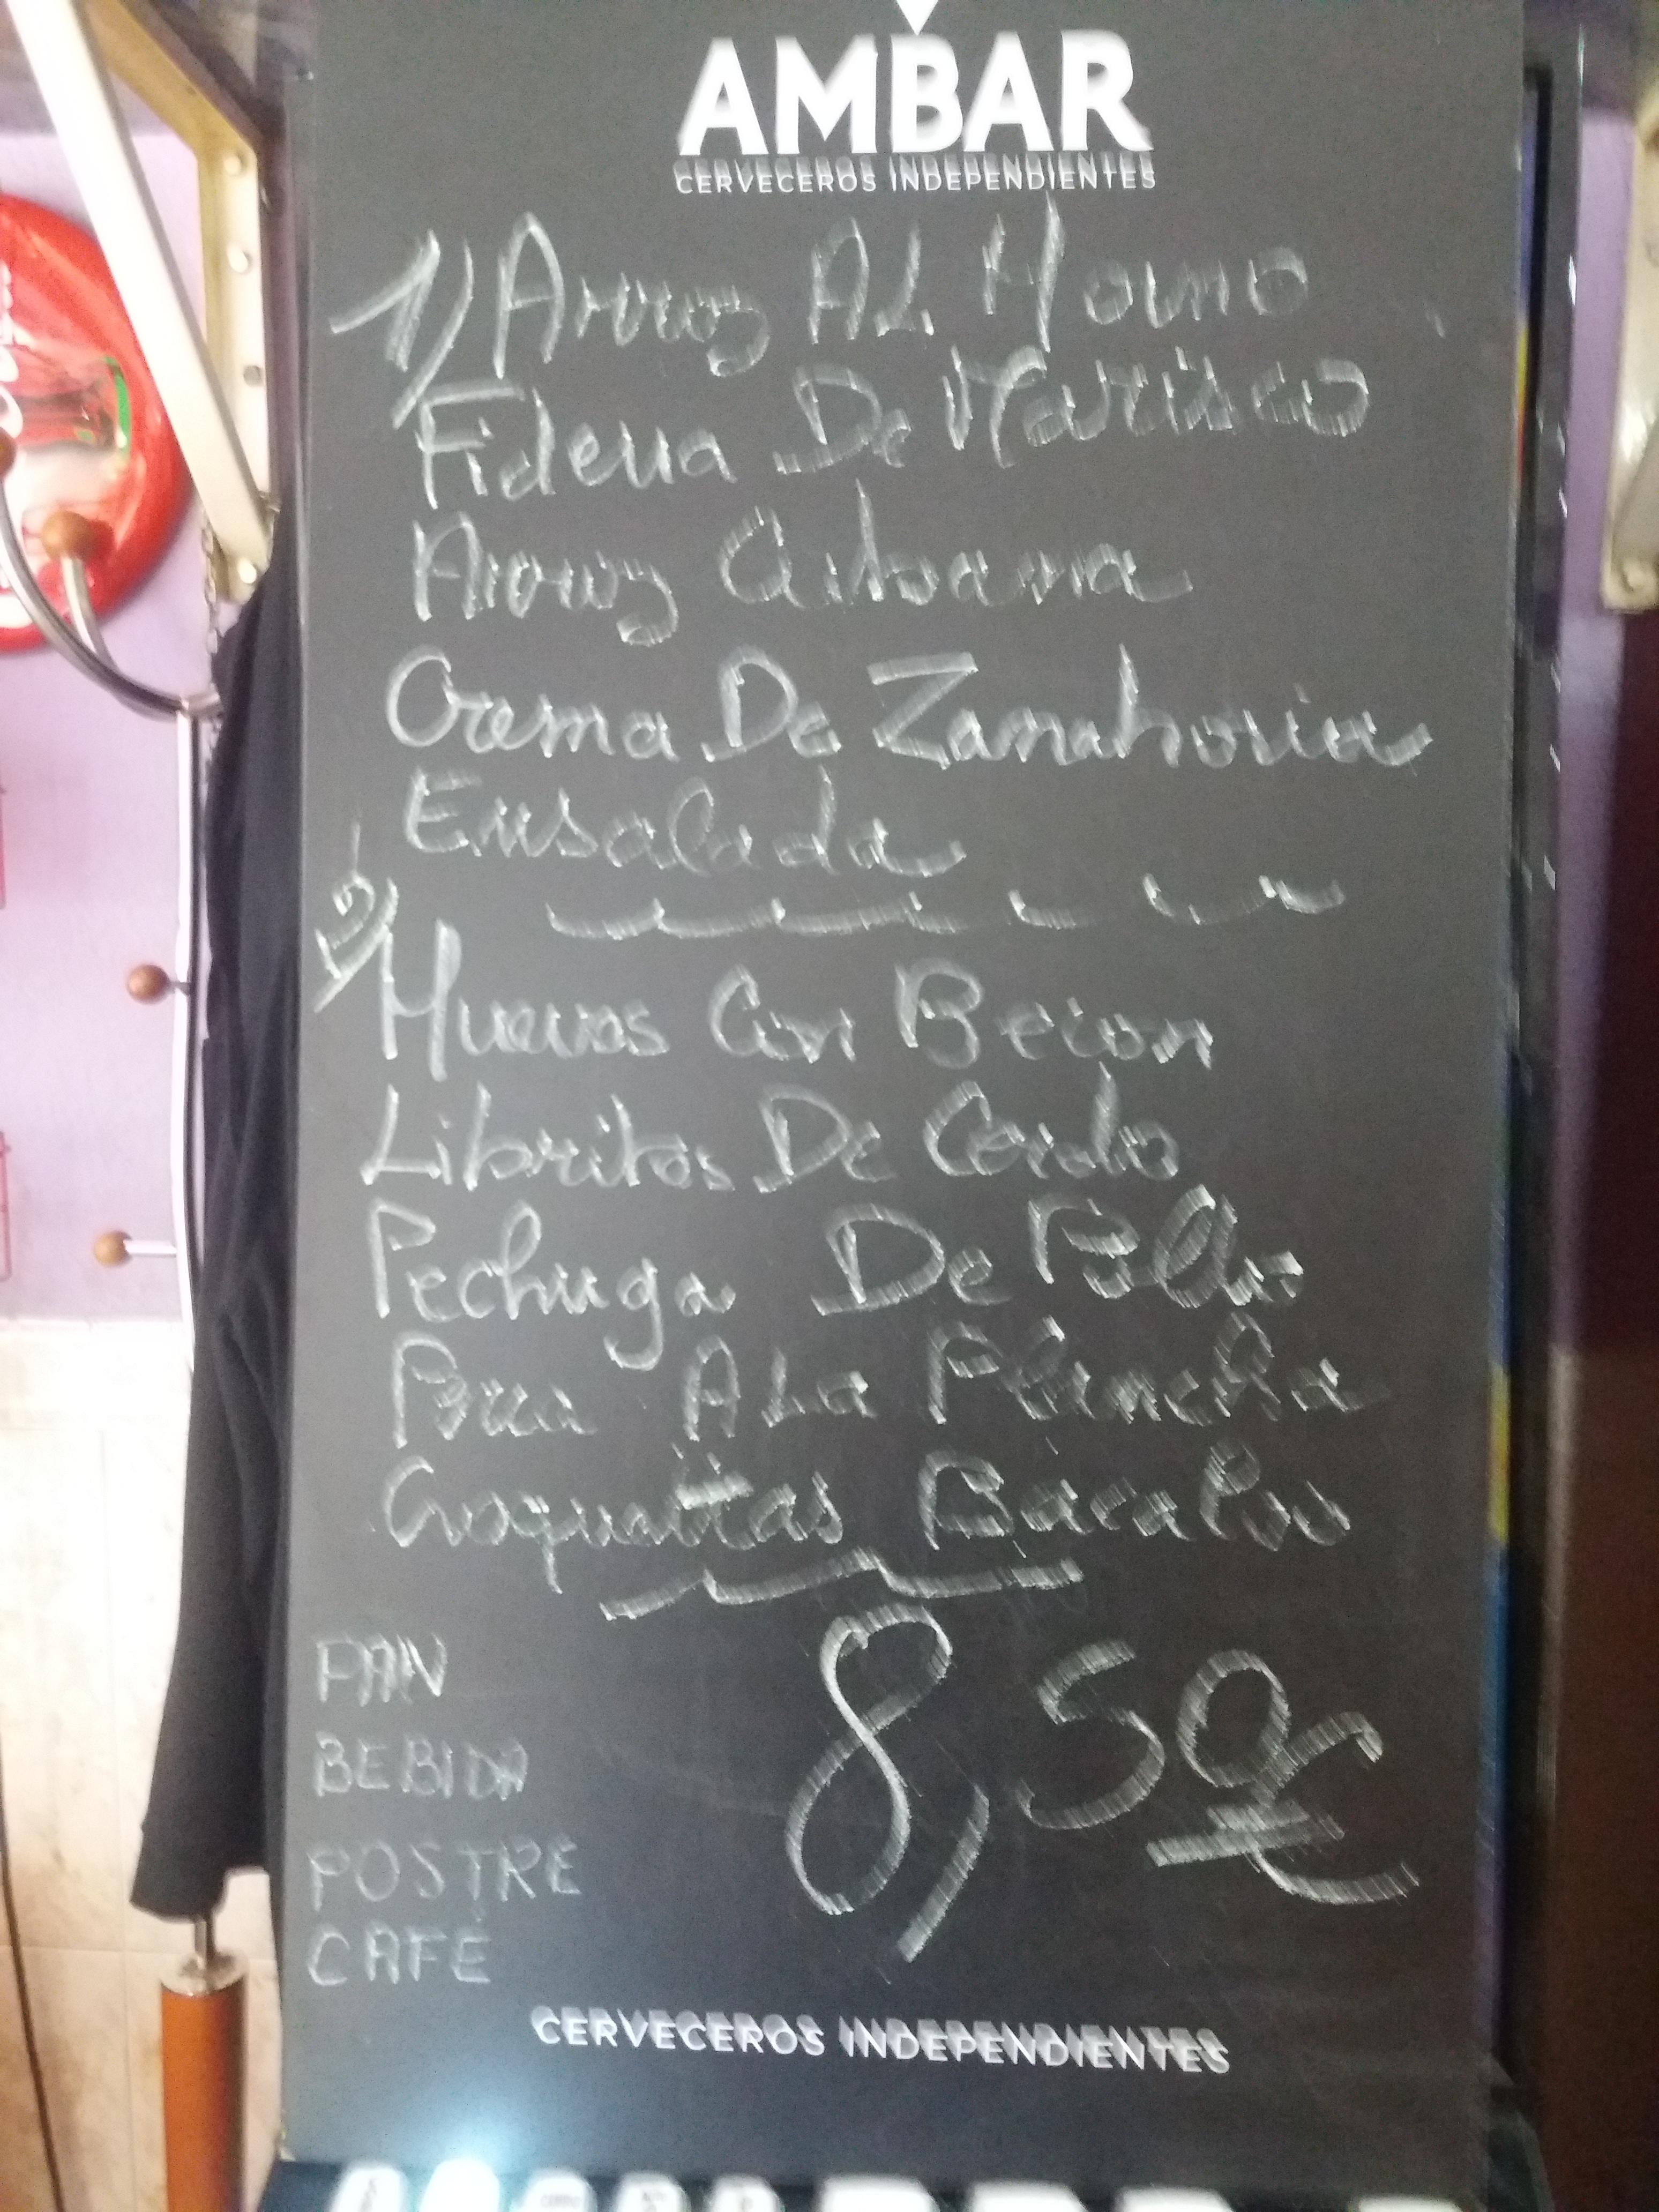 AMBAR
CERVECEROS INDEPENDIENTES
1) Arroz AL Horno
Fideua De Marisco
Arroz Cubana
Crema De Zanahoria
Ensalada
2)
Huevos Con Beicon
Libritos De Cerdo
Pechuga De Pollo
A La Plancha
Croquettas Bacalao
8,50€
PAN
BEBIDA
POSTRE
CAFÉ
CERVECEROS INDEPENDIENTES